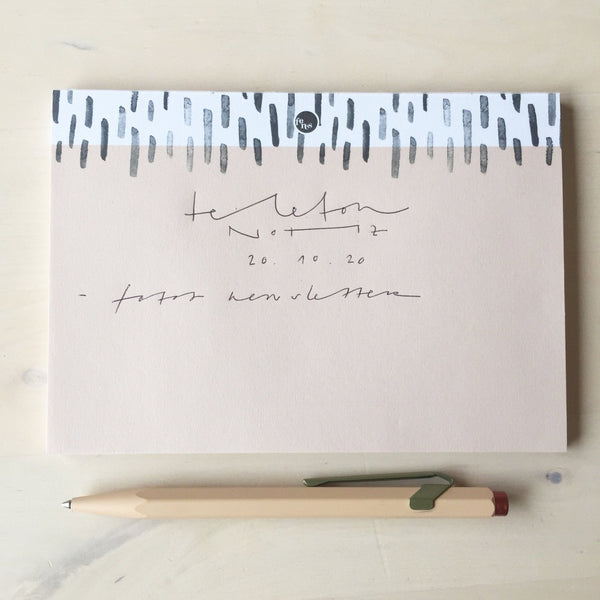 fons
telefon
NOTIZ
20. 10. 20
- fotos newsletter